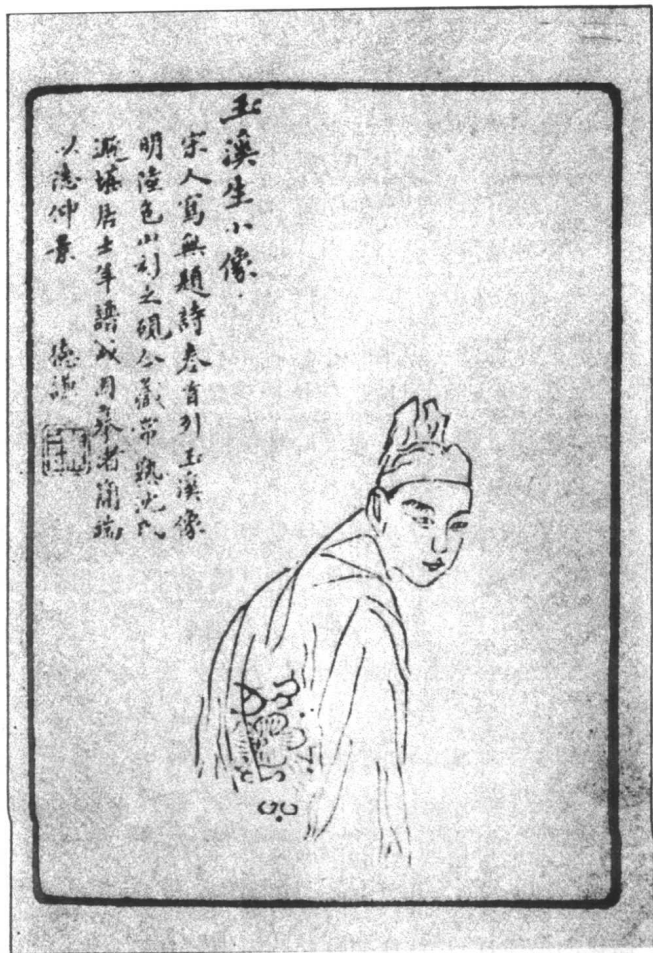 玉溪生小像
宋人寫無題詩卷首列玉溪像
明陸包山刻之硯今藏常熟沈氏
遯堪居士年譜成因摹者簡端
以志仰景 德謙